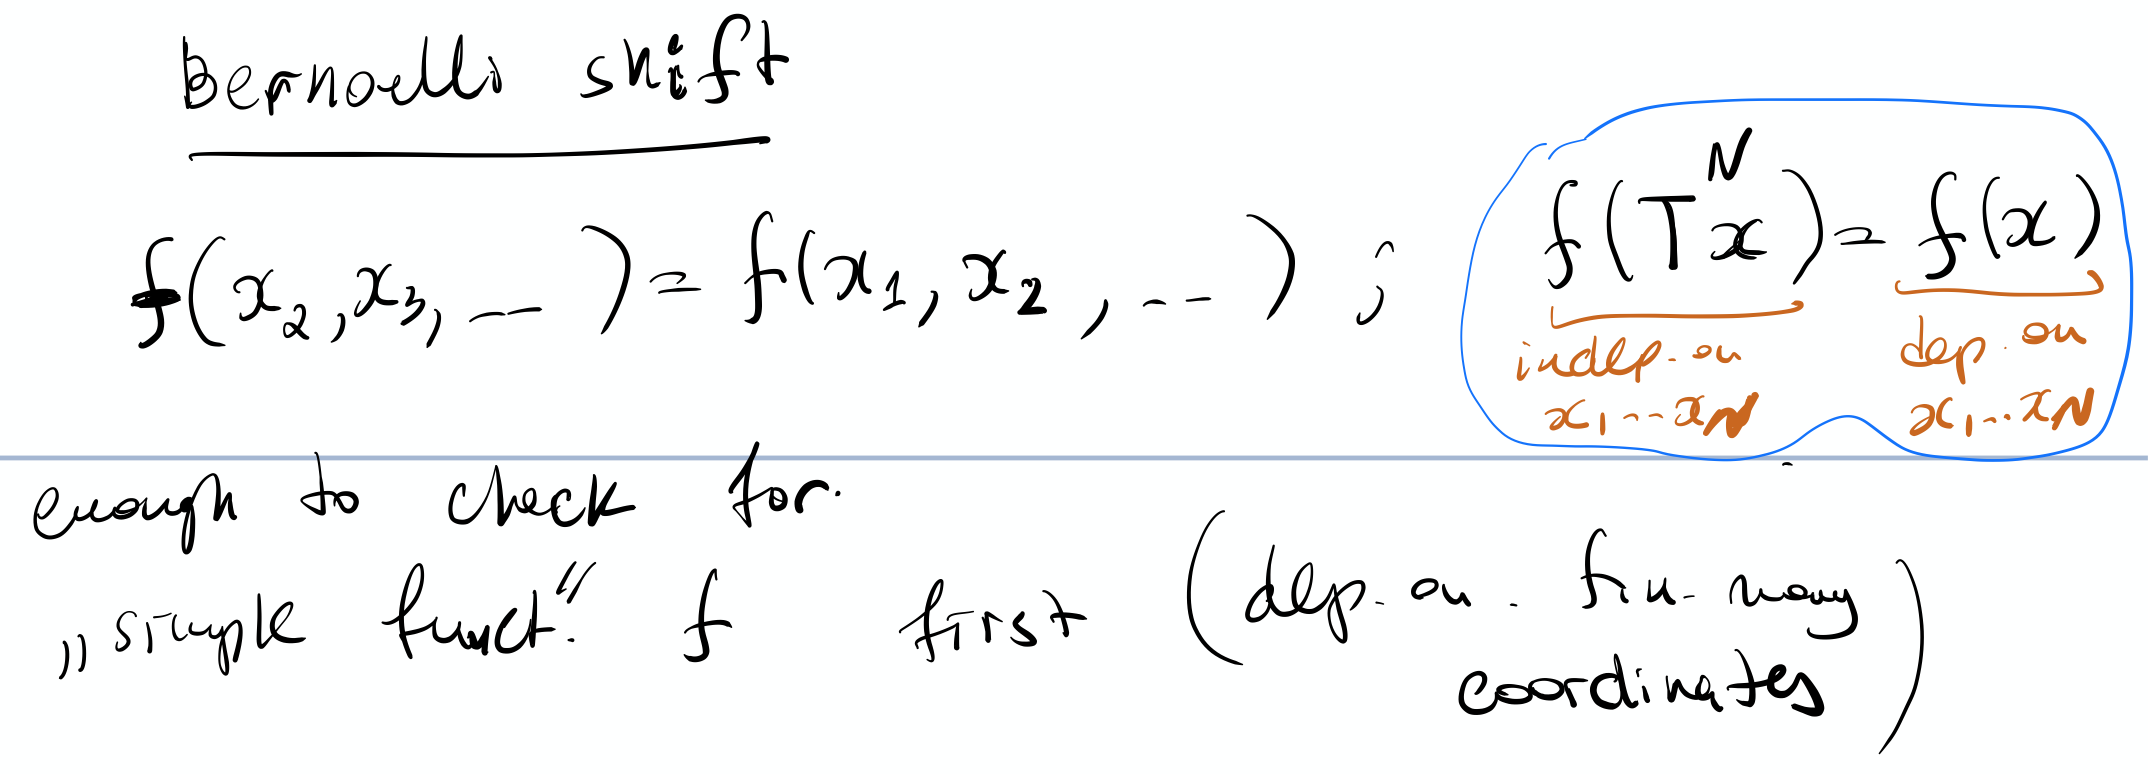 Bernoulli shift
f(x₂, x₃, ... ) = f(x₁, x₂, ... ) ; f(Tᴺx) = f(x)
indep. on dep. on
x₁...x_N x₁...x_N
enough to check for
„simple funct." f first (dep. on. fin. many
coordinates)